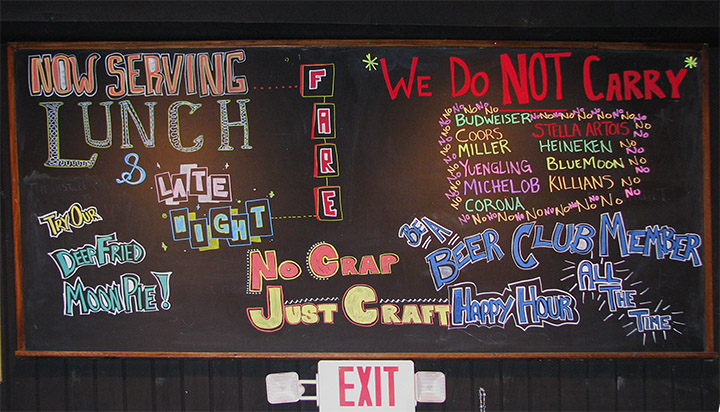 NOW SERVING
LUNCH
& LATE
NIGHT
FARE
TRY OUR
DEEP FRIED
MOON PIE!
NO CRAP
JUST CRAFT
*WE DO NOT CARRY*
NO NO NO NO
BUDWEISER NO NO NO NO NO NO NO
COORS STELLA ARTOIS NO
MILLER HEINEKEN NO
YUENGLING BLUE MOON NO
MICHELOB KILLIANS NO
CORONA NO
NO NO NO NO NO NO NO NO NO NO
BE A
BEER CLUB MEMBER
HAPPY HOUR
ALL
THE
TIME
EXIT